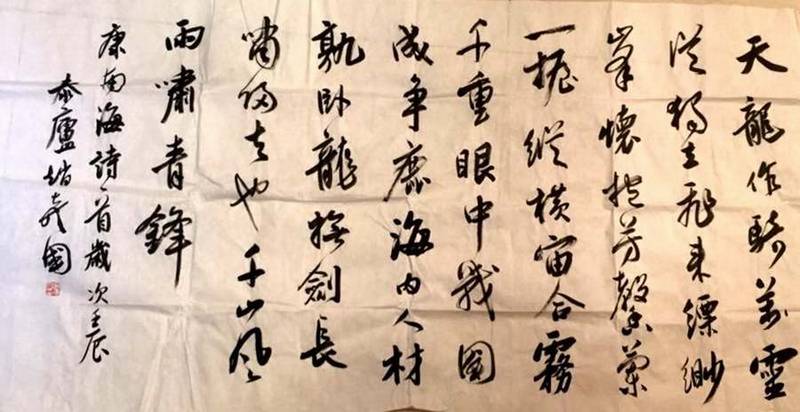 天龍作騎萬靈
從獨立飛來縹緲
峯懷抱芳馨蘭
一握縱橫宙合霧
千重眼中戰國
成爭鹿海內人材
孰卧龍撫劍長
嘯歸去也千山風
雨嘯青鋒
康南海詩一首歲次壬辰
泰廬國